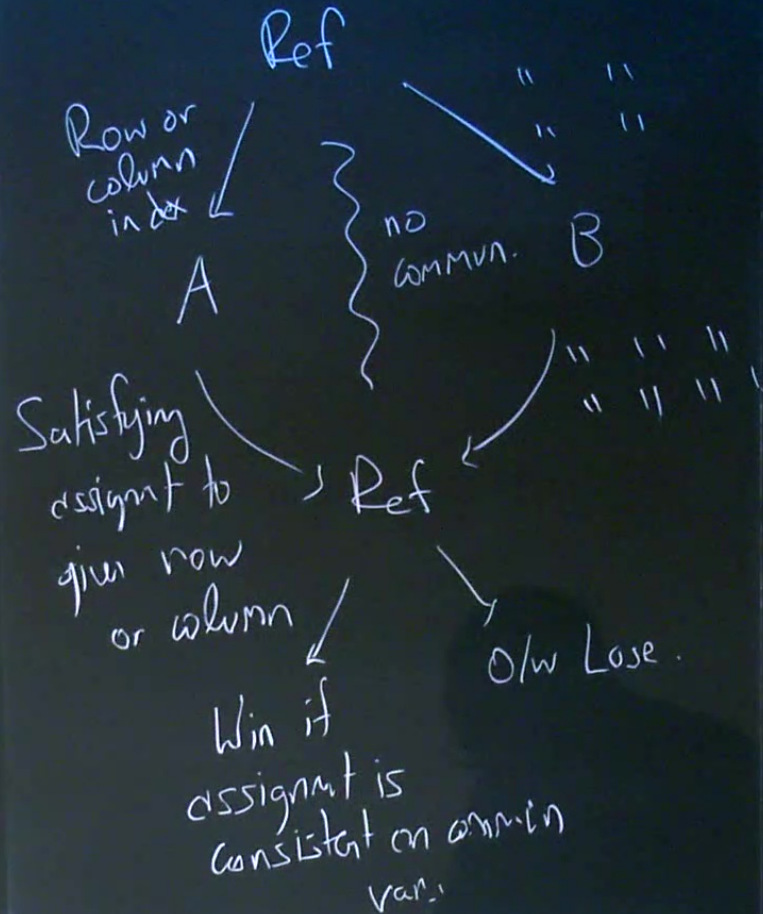 Ref
Row or
column
index
" "
" "
no
commun.
A
B
Satisfying
assignmt to
given row
or column
" " "
" " " "
Ref
Win if
assignmt is
consistent on common
var.
O/w Lose.